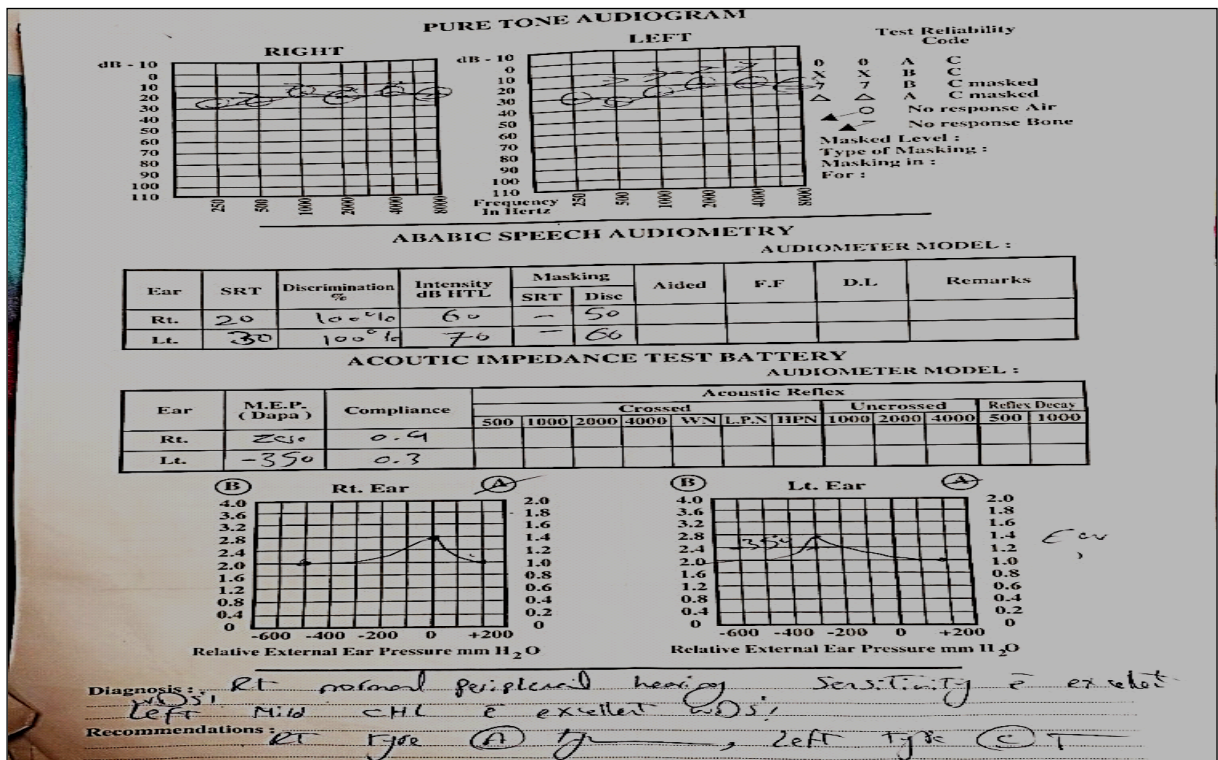 PURE TONE AUDIOGRAM
RIGHT
dB - 10
0
10
20
30
40
50
60
70
80
90
100
110
250 500 1000 2000 4000 8000
LEFT
dB - 10
0
10
20
30
40
50
60
70
80
90
100
110
Frequency
In Hertz
250 500 1000 2000 4000 8000
Test Reliability
Code
0 0 A C
X X B C
7 7 B C masked
△ △ A C masked
▲ O No response Air
▲ No response Bone
Masked Level :
Type of Masking :
Masking in :
For :
ABABIC SPEECH AUDIOMETRY
AUDIOMETER MODEL :
Ear SRT Discrimination % Intensity dB HTL Masking SRT Disc Aided F.F D.L Remarks
Rt. 20 100% 60 - 50
Lt. 30 100% 70 - 60
ACOUTIC IMPEDANCE TEST BATTERY
AUDIOMETER MODEL :
Ear M.E.P. (Dapa) Compliance Acoustic Reflex
Crossed Uncrossed Reflex Decay
500 1000 2000 4000 WN L.P.N HPN 1000 2000 4000 500 1000
Rt. zero
Lt. -350 0.3
B Rt. Ear A
4.0 2.0
3.6 1.8
3.2 1.6
2.8 1.4
2.4 1.2
2.0 1.0
1.6 0.8
1.2 0.6
0.8 0.4
0.4 0.2
0 0
-600 -400 -200 0 +200
Relative External Ear Pressure mm H2O
B Lt. Ear A
4.0 2.0
3.6 1.8
3.2 1.6
2.8 1.4
2.4 -350 1.2
2.0 1.0
1.6 0.8
1.2 0.6
0.8 0.4
0.4 0.2
0 0
-600 -400 -200 0 +200
Relative External Ear Pressure mm H2O
Diagnosis : Rt normal peripheral hearing sensitivity c̄ excellent
WDS,
Left Mild CHL c̄ excellent WDS,
Recommendations :
Rt type A, Left type C T